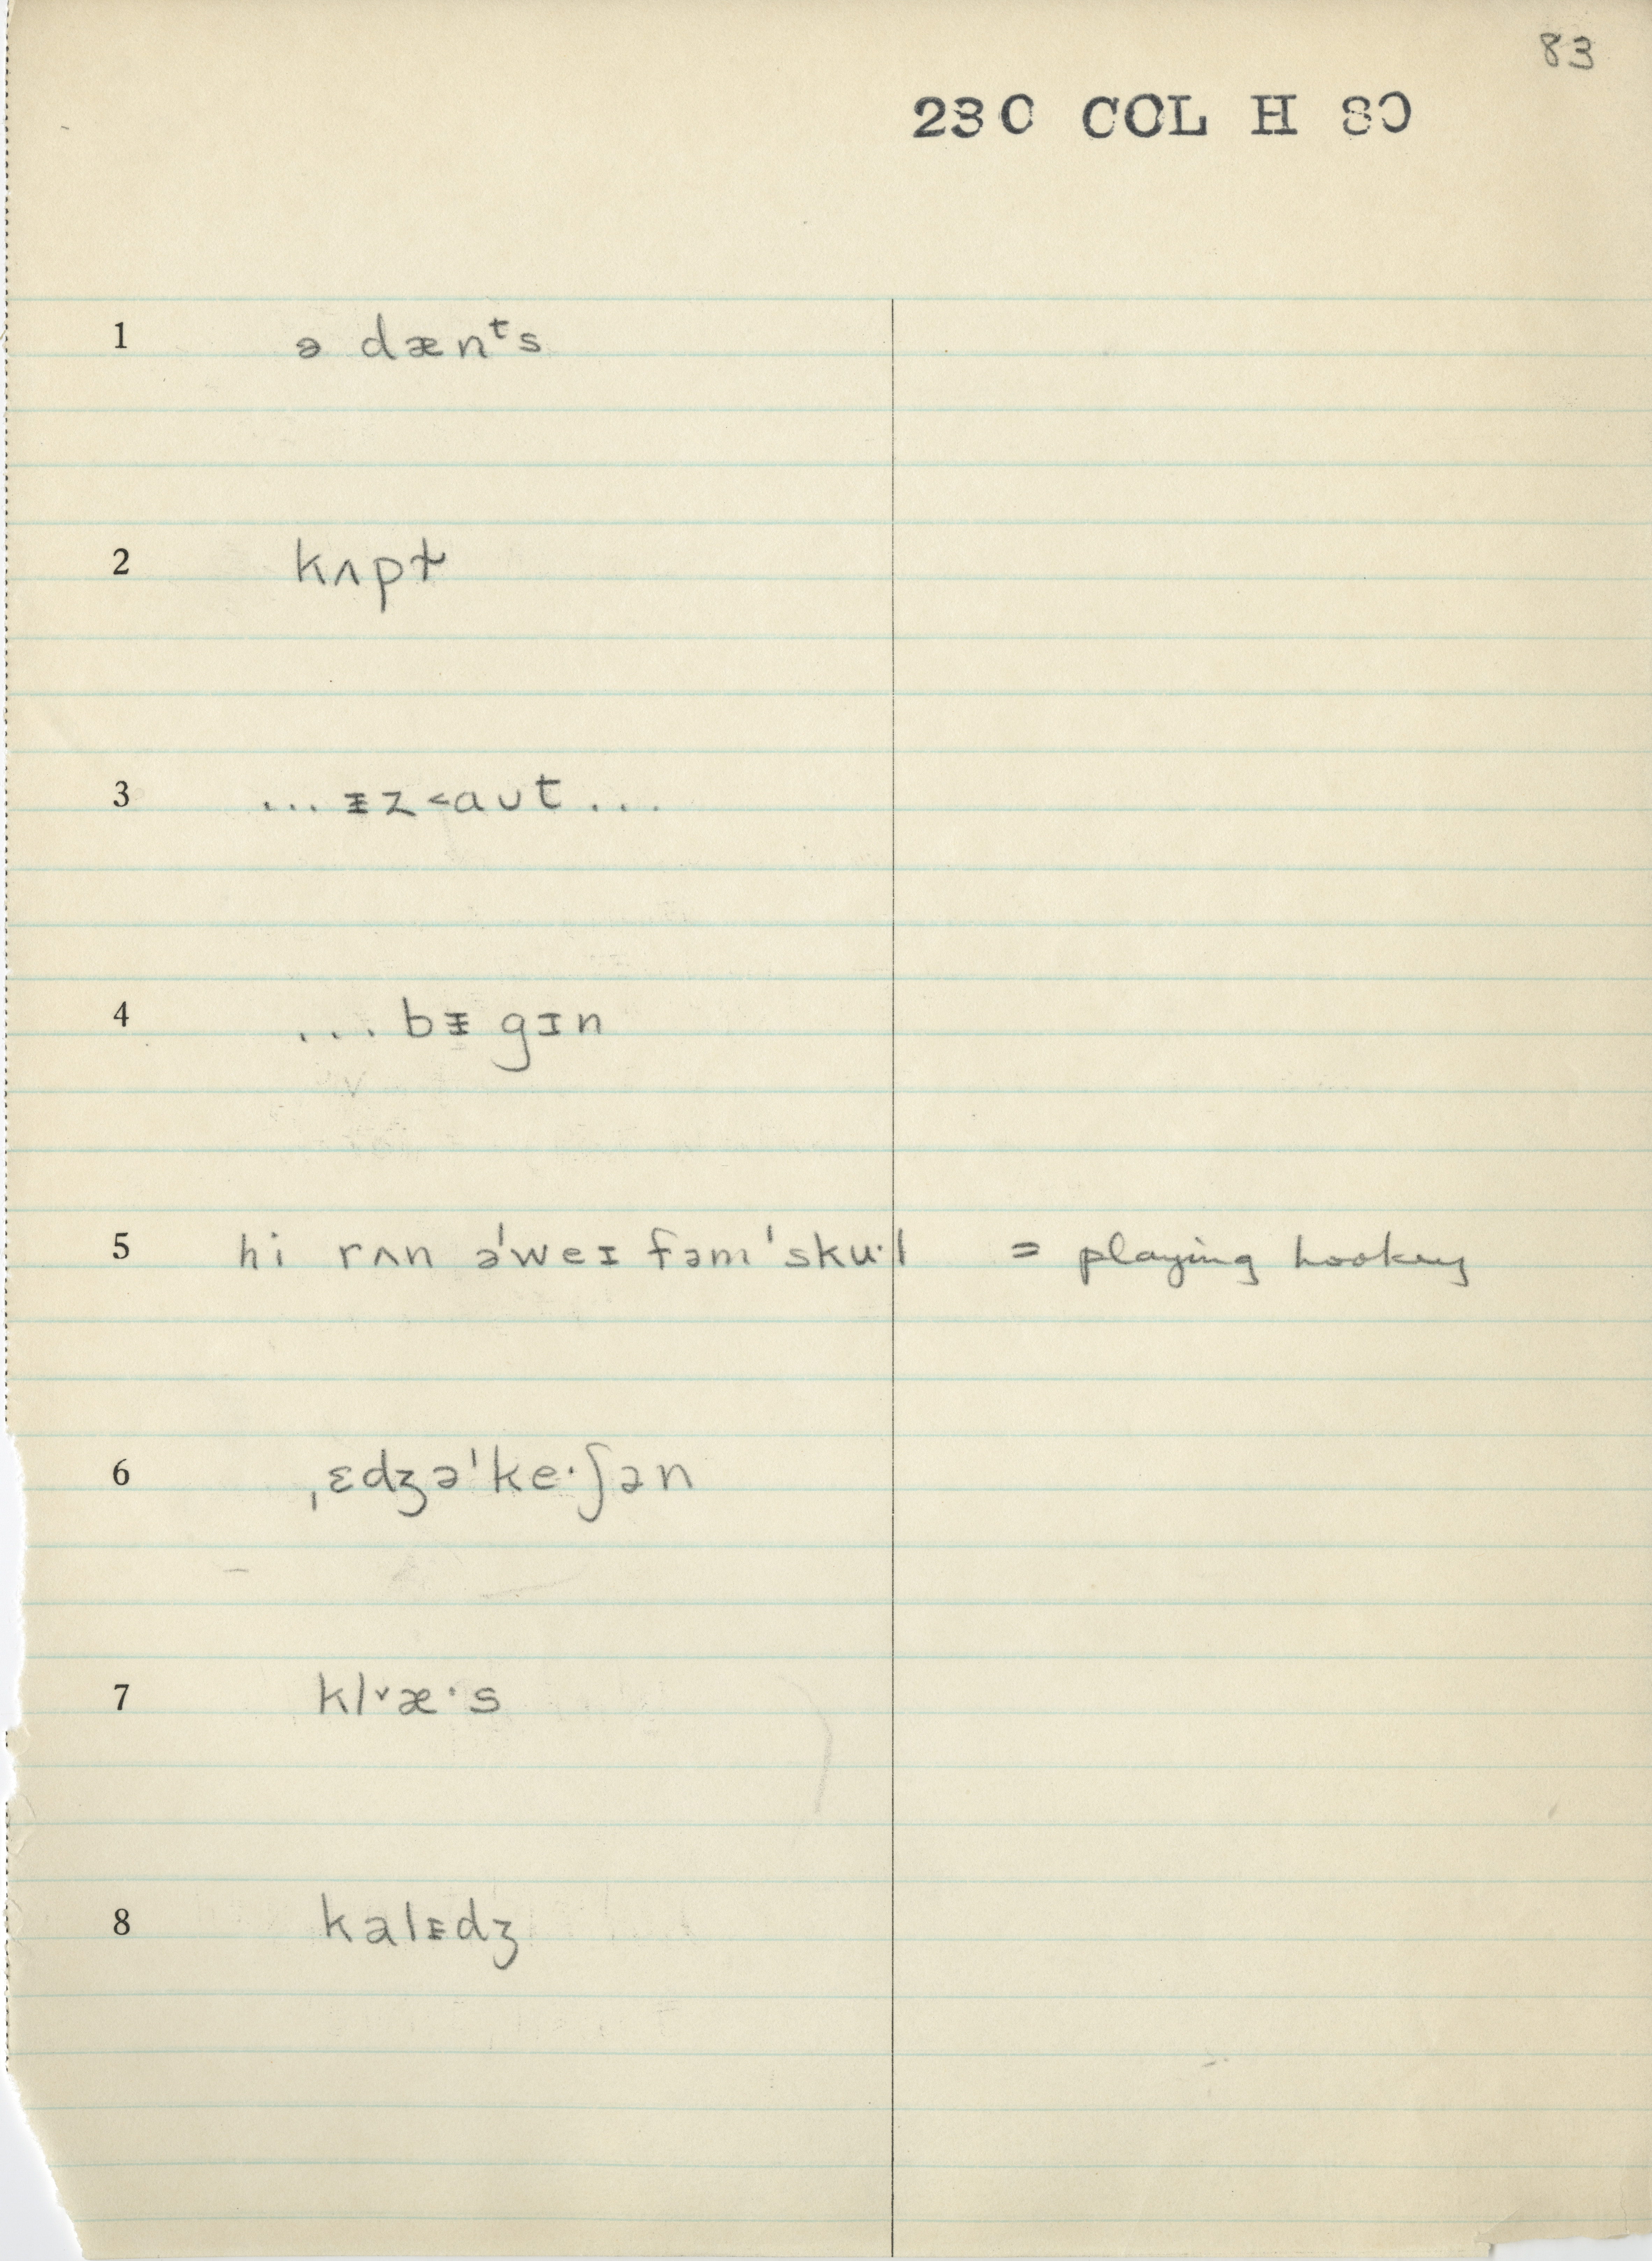 83
230 COL H 80
1 ə dænᵗs
2 kʌpt
3 ... ᵻz˂aut ...
4 ... bᵻgɪn
5 hi rʌn ə'weɪ fəm'sku·l = playing hookey
6 ˌɛdʒə'ke·ʃən
7 kl˅æ·s
8 kalᵻdʒ